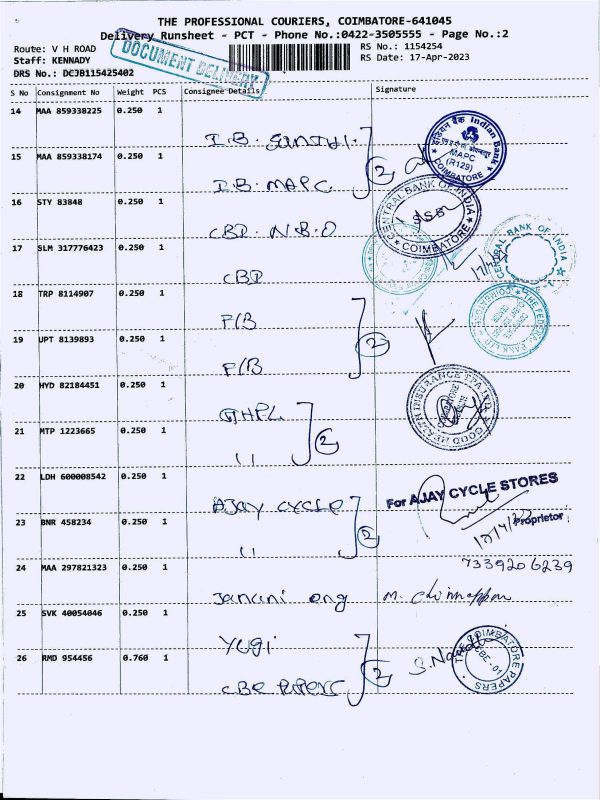 THE PROFESSIONAL COURIERS, COIMBATORE-641045
Delivery Runsheet - PCT - Phone No.:0422-3505555 - Page No.:2
Route: V H ROAD
RS No.: 1154254
Staff: KENNADY
RS Date: 17-Apr-2023
DRS No.: DCJB115425402
DOCUMENT DELIVERY
S No Consignment No Weight PCS Consignee Details Signature
14 MAA 859338225 0.250 1
I.B. Gandhi.
15 MAA 859338174 0.250 1
I.B. MAPC
2
इंडियन बैंक Indian Bank
MAPC
(R129)
COIMBATORE
16 STY 83848 0.250 1
CBI. N.B.O
CENTRAL BANK OF INDIA
COIMBATORE
17 SLM 317776423 0.250 1
CBI
CENTRAL BANK OF INDIA
18 TRP 8114907 0.250 1
F/B
19 UPT 8139893 0.250 1
F/B
2
THE FEDERAL BANK LTD
20 HYD 82184451 0.250 1
GHPL
21 MTP 1223665 0.250 1
"
2
GOOD HEALTH INSURANCE TPA LTD
22 LDH 600008542 0.250 1
AJAY CYCLE
23 BNR 458234 0.250 1
"
2
For AJAY CYCLE STORES
Proprietor
24 MAA 297821323 0.250 1
7339206239
Janani eng M. Chinnappan
25 SVK 40054046 0.250 1
YUGI
26 RMD 954456 0.760 1
CBE PAPERS
2
THE COIMBATORE PAPERS
CBE - 01